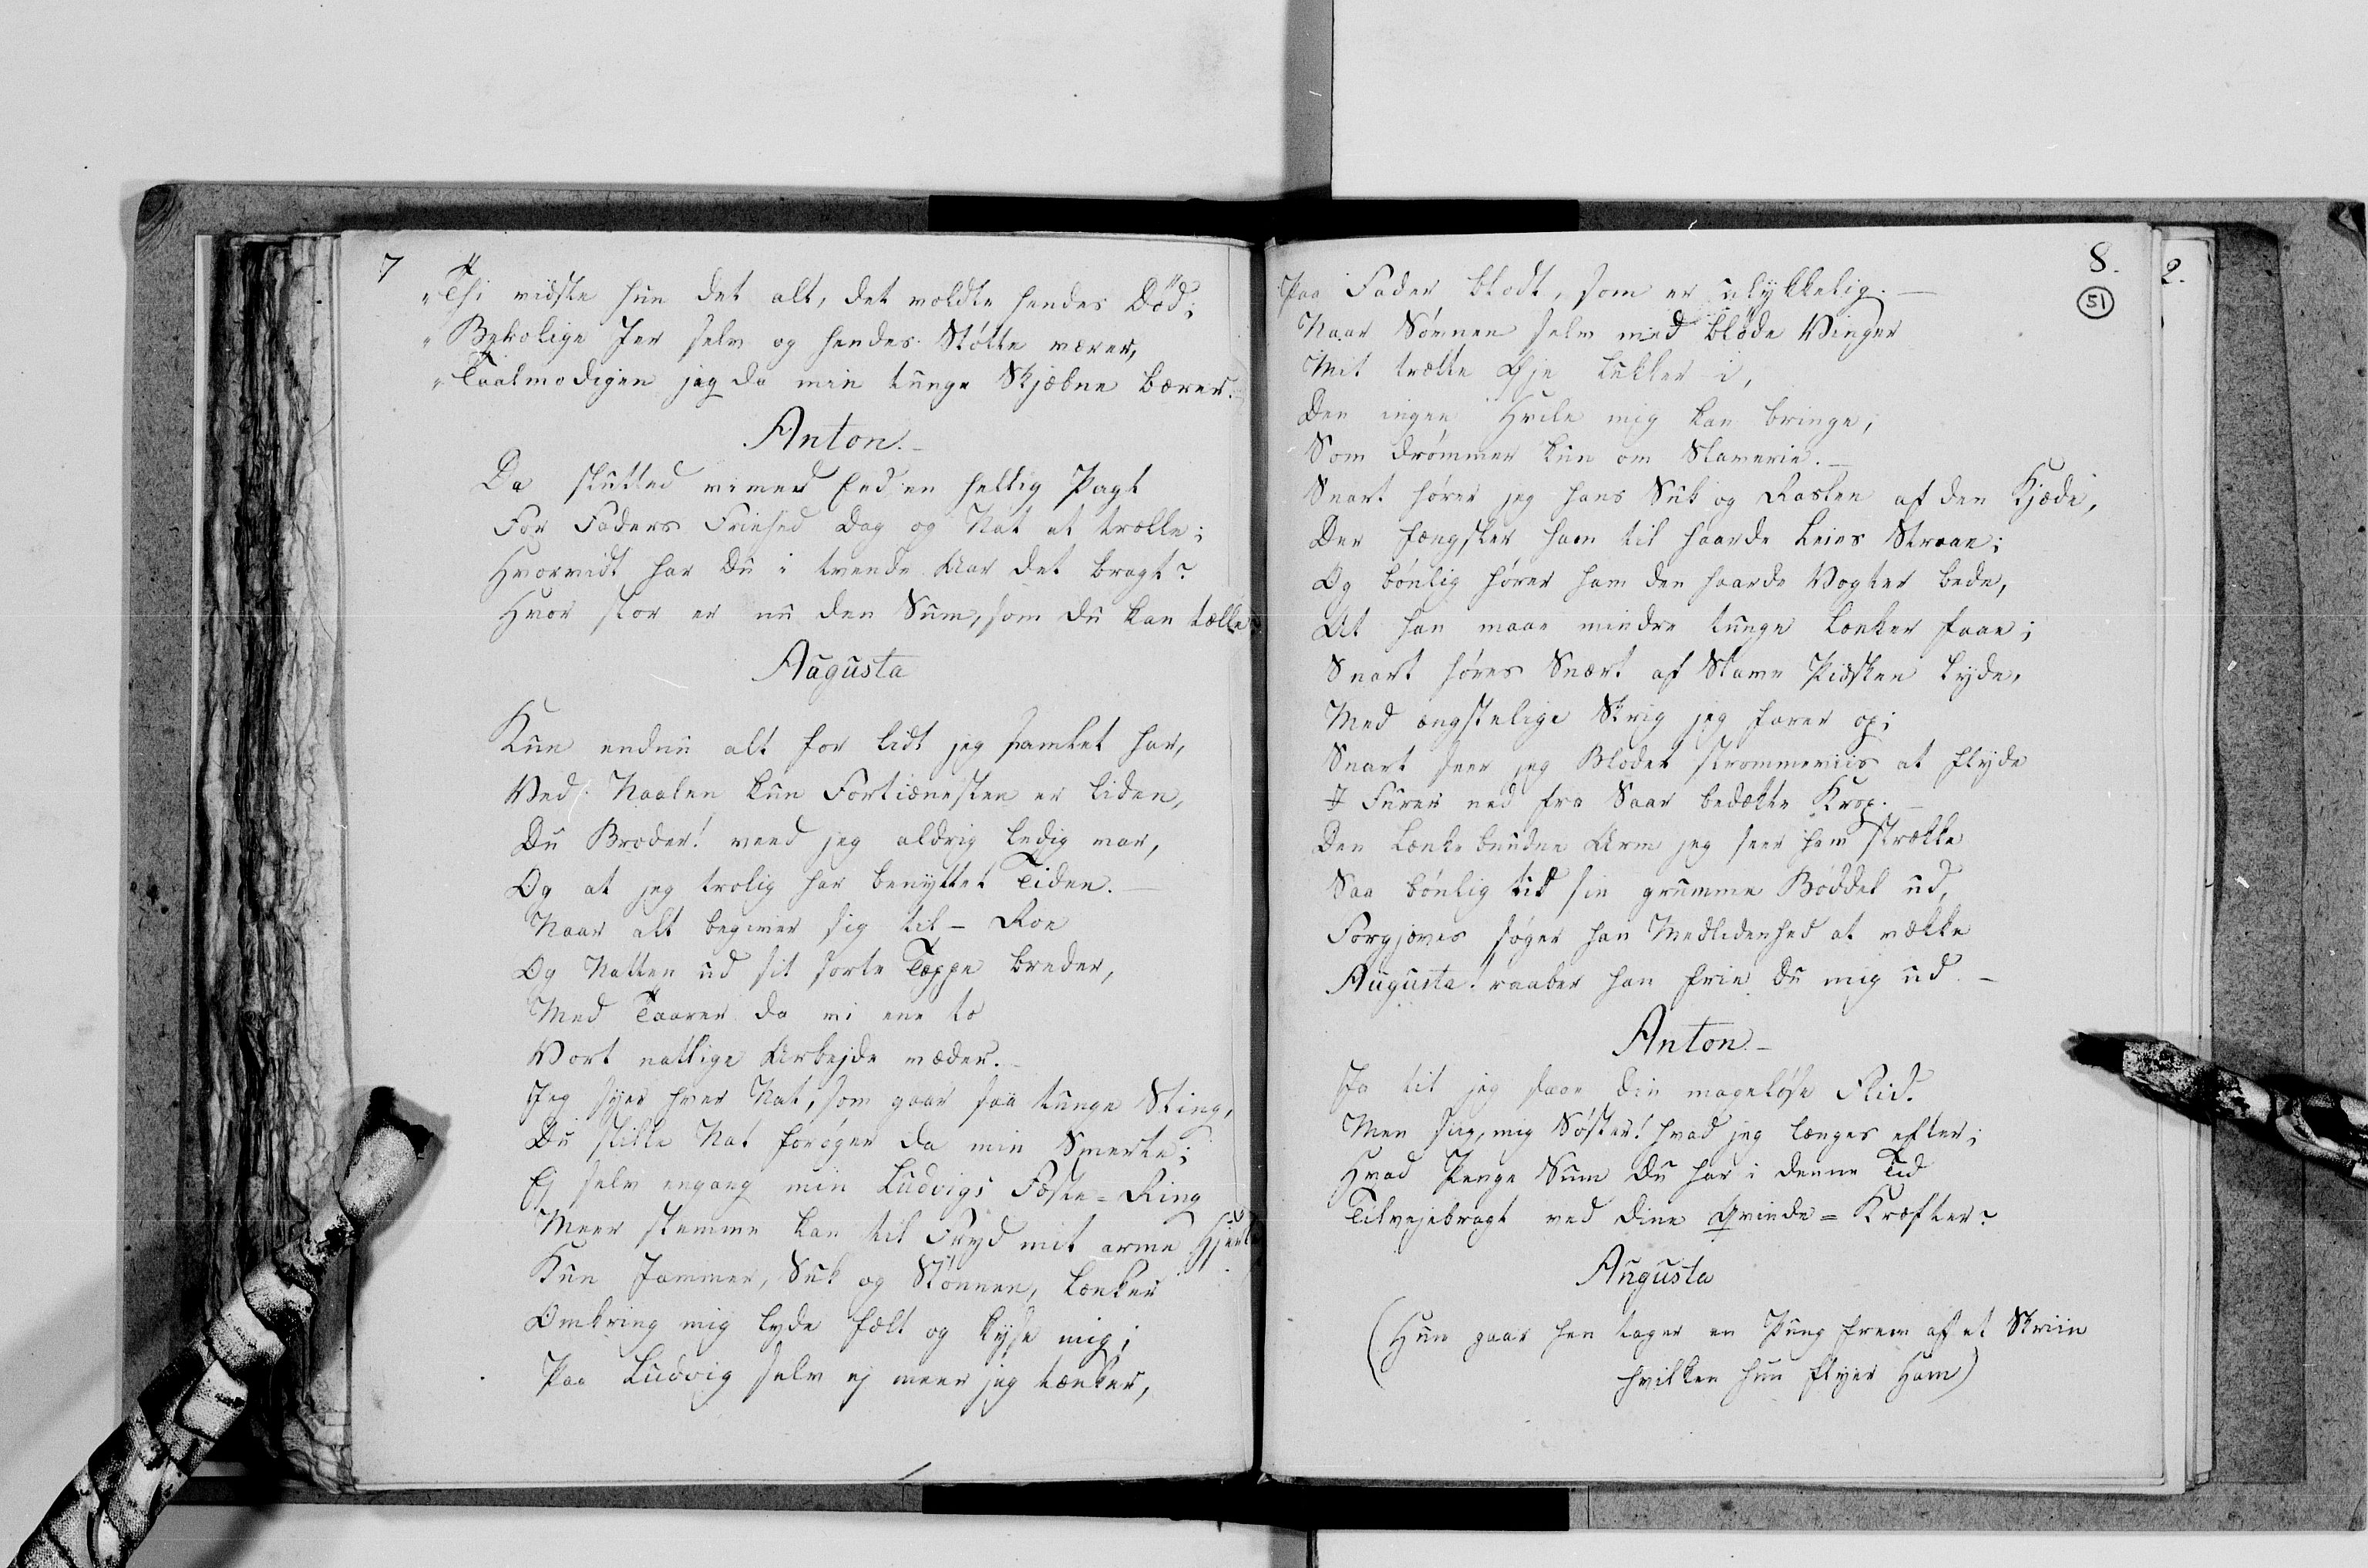 7
"Thi vidste hun det alt, det voldte hendes Död;
"Bekolige Jer selv og hendes Støtte værer,
"Taalmodigen jeg da min tunge Skjæbne bærer.
Anton.
Da slutted vi med Eed en hellig Pagt
For Faders Friehed Dag og Nat at trælle;
Hvorvidt har Du i tvende Aar det bragt?
Hvor stor er nu den Sum, som Du kan tælle?
Augusta
Kun endnu alt for lidt jeg samlet har,
Ved Naalen kun Fortienesten er liden,
Du Broder! veed jeg aldrig ledig var,
Og at jeg trolig har benyttet Tiden. —
Naar alt begiver sig til - Roe
Og Natten ud sit sorte Teppe breder,
Med Taarer da vi ene to
Vort natlige Arbejde væder. —
Jeg syer hver Nat, som gaar saa tunge Sting,
Du stille Nat forøger da min Smerte;
Ej selv engang min Ludvigs Fæste-Ring
Meer stemme kan til Fryd mit arme Hjerte
Kun Jammer, Suk og Stønnen, Lænker
Omkring mig lyde fælt og kyse mig;
Paa Ludvig selv ej meer jeg tænker,
8.
51
2.
Paa Fader blodt, som er ulykkelig. —
Naar Sövnen selv med bløde Vinger
Mit trætte Øje lukker i,
Den ingen Hvile mig kan bringe,
Som drømmer kun om Slaverie. —
Snart hører jeg hans Suk og Raslen af den Kjæde,
Der fængsler ham til haarde Leies Straae;
Og bønlig hører ham den haarde Vogter bede,
At han maae mindre tunge Lænker faae;
Snart høres Snært af Slave Pidsken lyde,
Med ængstelige Skrig jeg farer op;
Snart seer jeg Blodet strømmeviis at flyde
I Furer ned fra Saar bedækte Krop. —
Den Lænkebundne Arm jeg seer ham strække
Saa bönlig till sin grumme Bøddel ud,
Forgjæves søger han Medlidenhed at vække
Augusta! raaber han frie Du mig ud —
Anton —
Ja tit jeg saae din mageløse Flid.
Men siig, mig Søster! hvad jeg længes efter;
Hvad Penge Sum Du har i denne Tid
Tilvejebragt ved dine Qvinde-Kræfter?
Augusta
(Hun gaar hen tager en Pung frem af et Skriin
hvilken hun flyer Ham)